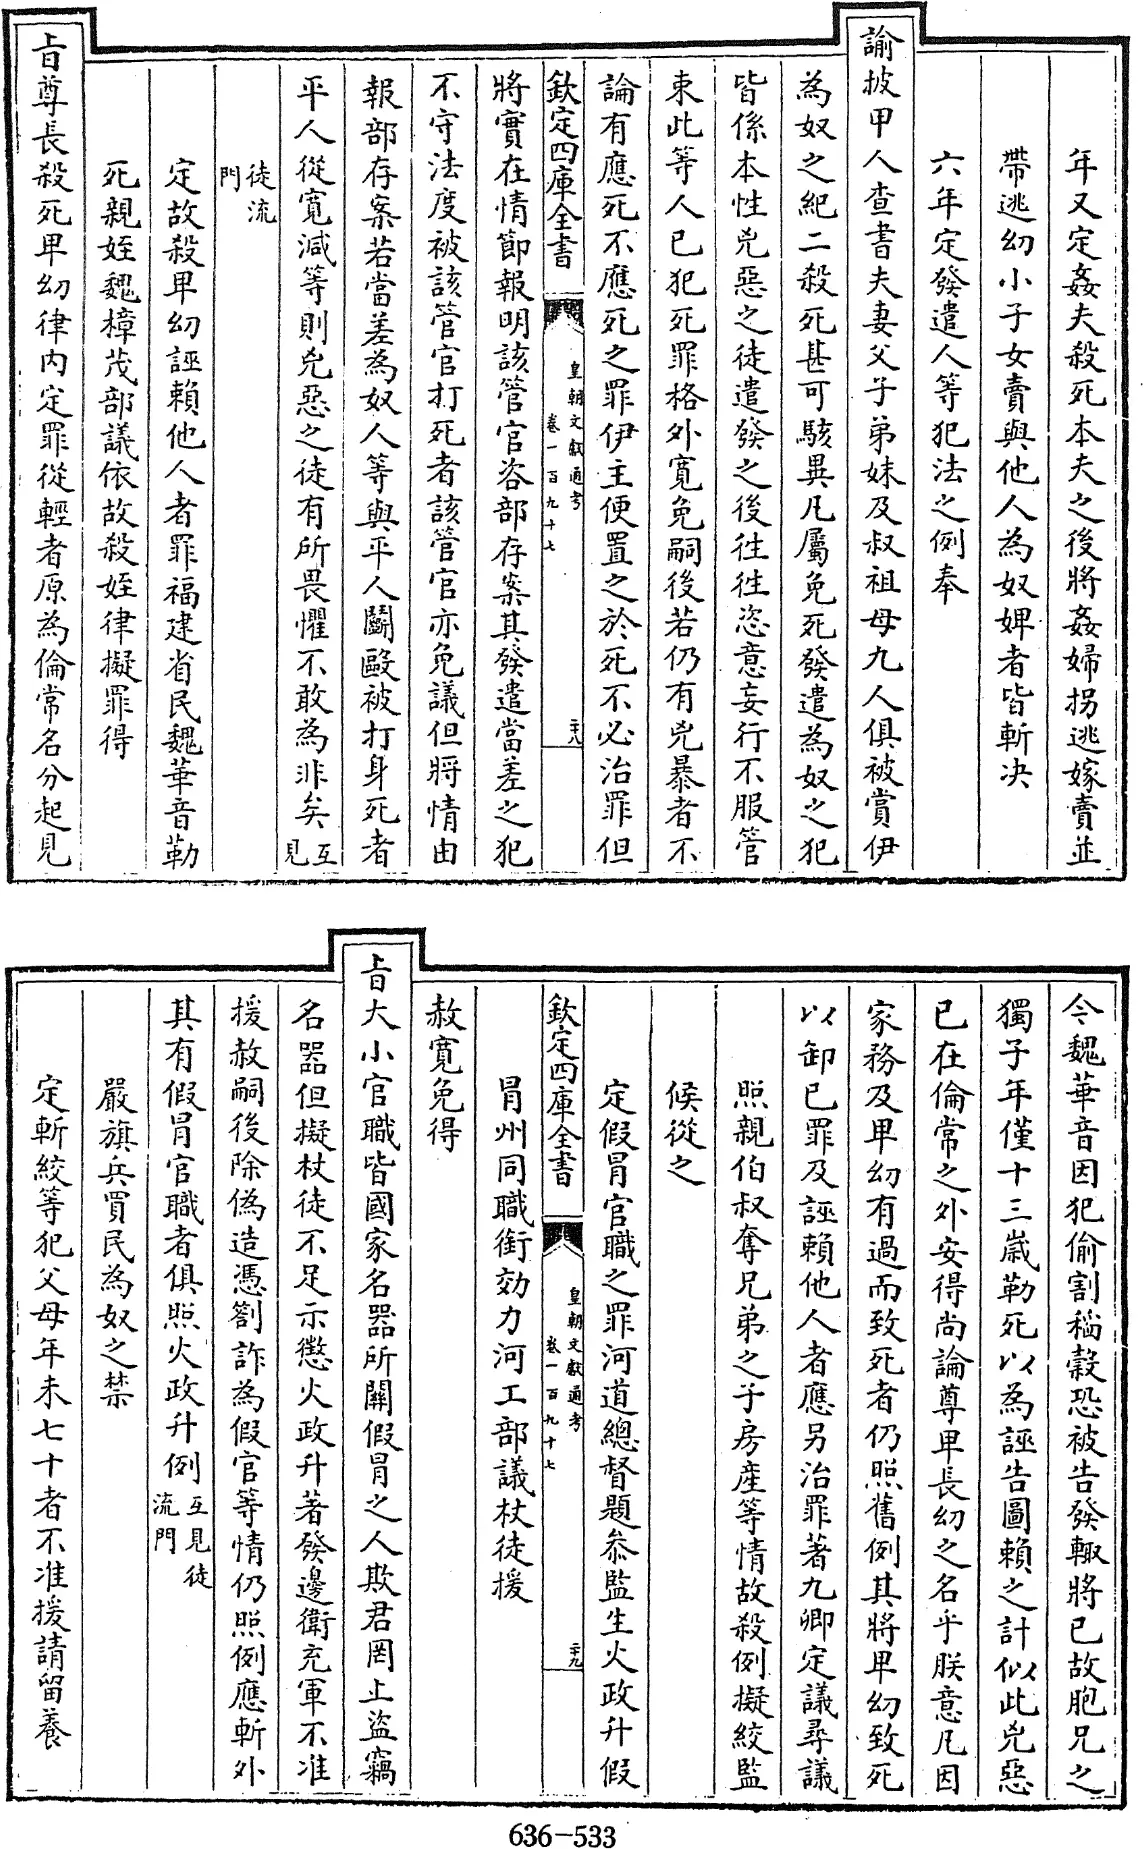 年又定姦夫殺死本夫之後將姦婦拐逃嫁賣並
帶逃幼小子女賣與他人為奴婢者皆斬决
六年定發遣人等犯法之例奉
諭披甲人查書夫妻父子弟妹及叔祖母九人俱被賞伊
為奴之紀二殺死甚可駭異凡屬免死發遣為奴之犯
皆係本性兇惡之徒遣發之後往往恣意妄行不服管
束此等人已犯死罪格外寬免嗣後若仍有兇暴者不
論有應死不應死之罪伊主便置之於死不必治罪但
欽定四庫全書
皇朝文獻通考
卷一百九十七
二十八
將實在情節報明該管官咨部存案其發遣當差之犯
不守法度被該管官打死者該管官亦免議但將情由
報部存案若當差為奴人等與平人鬬毆被打身死者
平人從寬減等則兇惡之徒有所畏懼不敢為非矣互
見
徒流
門
定故殺卑幼誣賴他人者罪福建省民魏華音勒
死親姪魏樟茂部議依故殺姪律擬罪得
旨尊長殺死卑幼律内定罪從輕者原為倫常名分起見
今魏華音因犯偷割稻穀恐被告發輙將已故胞兄之
獨子年僅十三歲勒死以為誣告圖賴之計似此兇惡
已在倫常之外安得尚論尊卑長幼之名乎朕意凡因
家務及卑幼有過而致死者仍照舊例其將卑幼致死
以卸已罪及誣賴他人者應另治罪著九卿定議尋議
照親伯叔奪兄弟之子房產等情故殺例擬絞監
候從之
定假冒官職之罪河道總督題叅監生火政升假
欽定四庫全書
皇朝文獻通考
卷一百九十七
二十九
冒州同職銜効力河工部議杖徒援
赦寬免得
旨大小官職皆國家名器所關假冒之人欺君罔上盜竊
名器但擬杖徒不足示懲火政升著發邊衛充軍不准
援赦嗣後除偽造憑劄詐為假官等情仍照例應斬外
其有假冒官職者俱照火政升例互見徒
流門
嚴旗兵買民為奴之禁
定斬絞等犯父母年未七十者不准援請留養
636-533